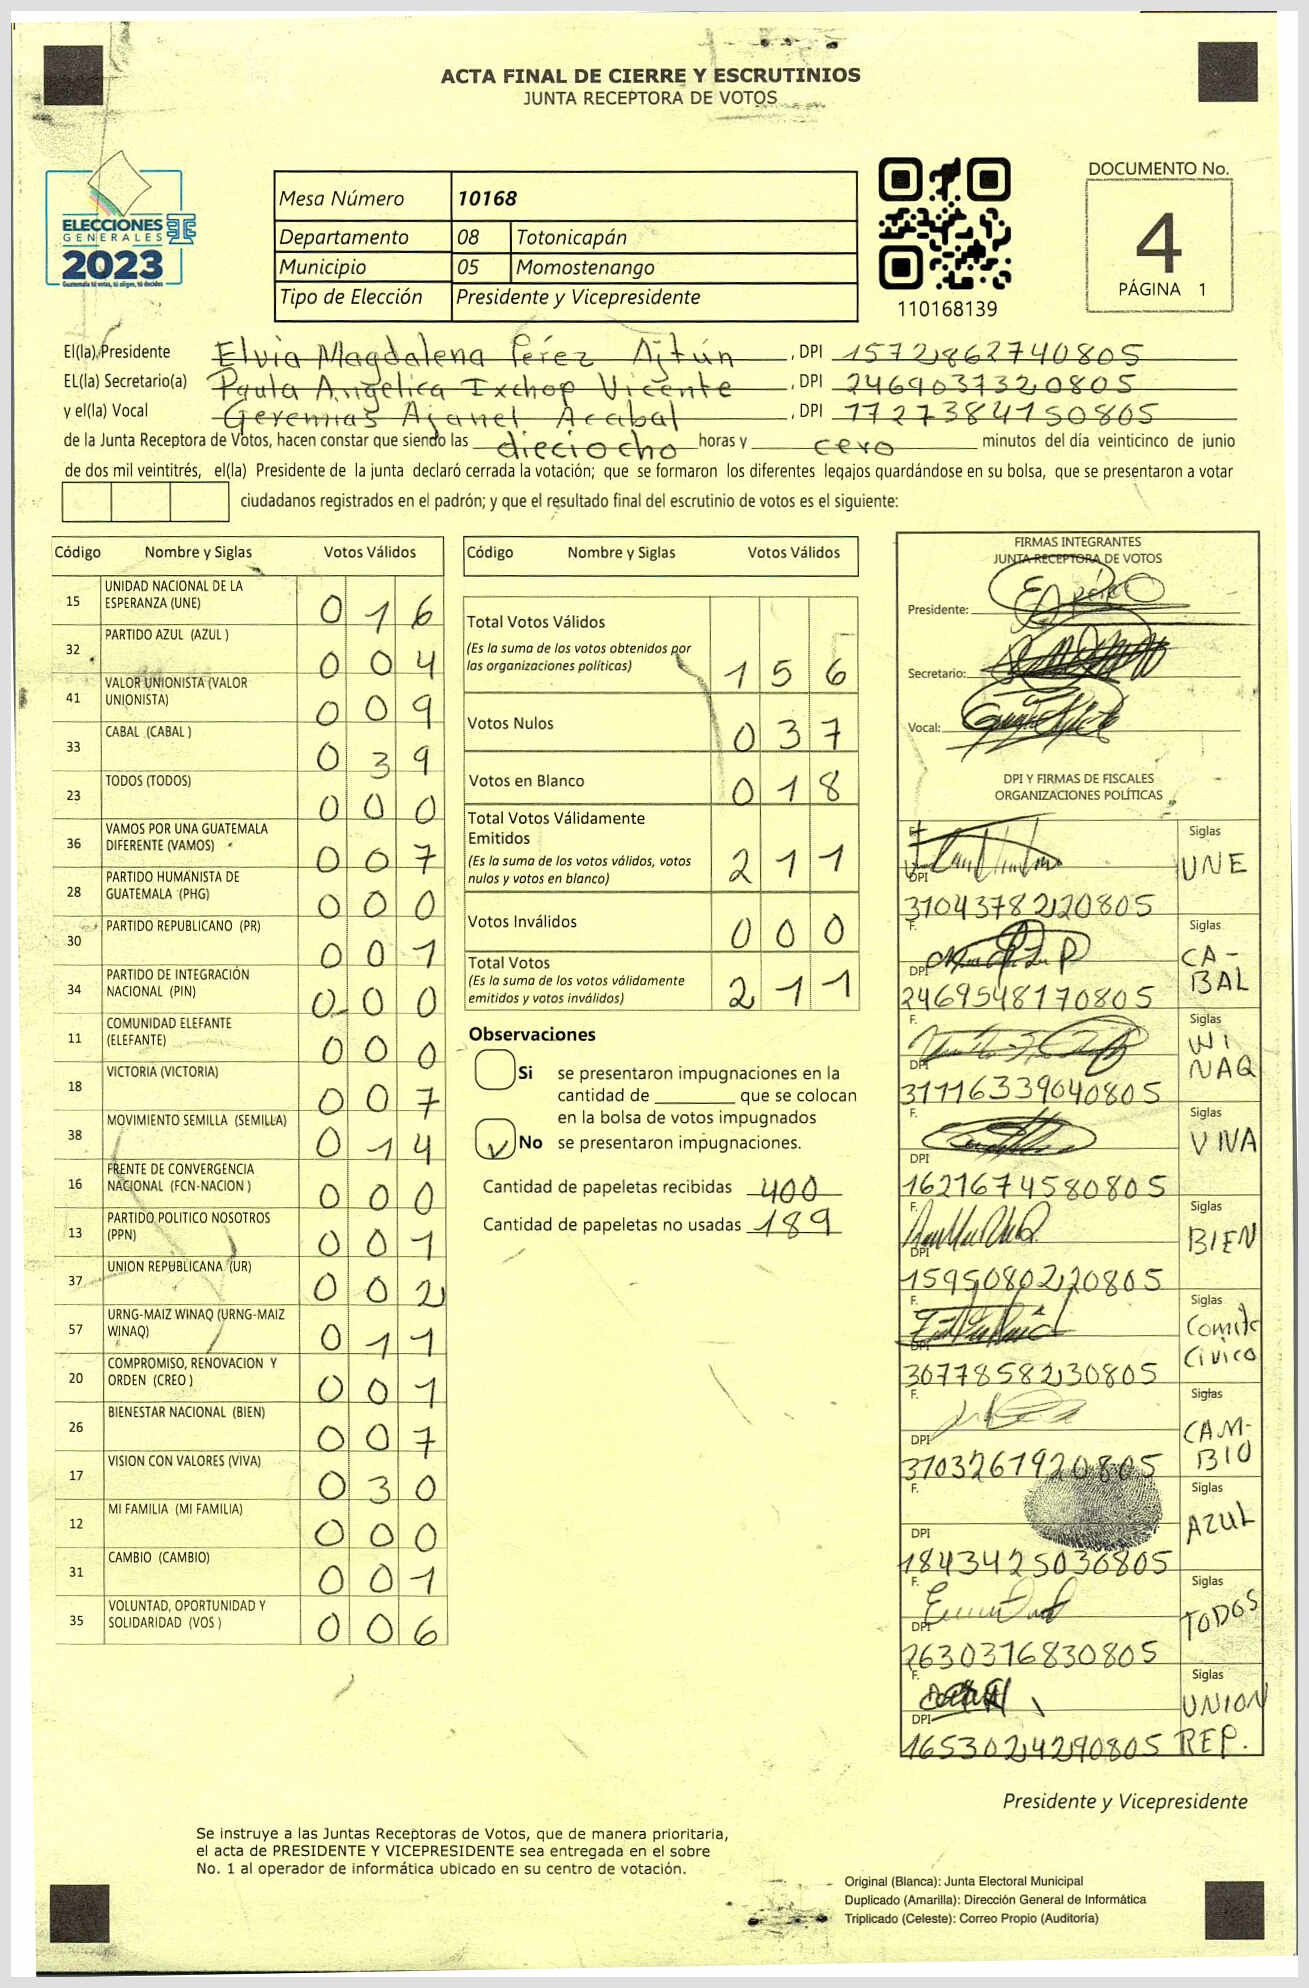 ACTA FINAL DE CIERRE Y ESCRUTINIOS
JUNTA RECEPTORA DE VOTOS
ELECCIONES
GENERALES
2023
Guatemala tú votas, tú eliges, tú decides
Mesa Número 10168
Departamento 08 Totonicapán
Municipio 05 Momostenango
Tipo de Elección Presidente y Vicepresidente
110168139
DOCUMENTO No.
4
PÁGINA 1
El(la) Presidente Elvia Magdalena Pérez Ajtún, DPI 1572862740805
EL(la) Secretario(a) Paula Angelica Ixchop Vicente, DPI 2469037320805
y el(la) Vocal Geremias Ajanel Acabal, DPI 1727384150805
de la Junta Receptora de Votos, hacen constar que siendo las dieciocho horas y cero minutos del día veinticinco de junio
de dos mil veintitrés, el(la) Presidente de la junta declaró cerrada la votación; que se formaron los diferentes legajos guardándose en su bolsa, que se presentaron a votar
ciudadanos registrados en el padrón; y que el resultado final del escrutinio de votos es el siguiente:
Código Nombre y Siglas Votos Válidos
15 UNIDAD NACIONAL DE LA ESPERANZA (UNE) 016
32 PARTIDO AZUL (AZUL ) 004
41 VALOR UNIONISTA (VALOR UNIONISTA) 009
33 CABAL (CABAL ) 039
23 TODOS (TODOS) 000
36 VAMOS POR UNA GUATEMALA DIFERENTE (VAMOS) 007
28 PARTIDO HUMANISTA DE GUATEMALA (PHG) 000
30 PARTIDO REPUBLICANO (PR) 001
34 PARTIDO DE INTEGRACIÓN NACIONAL (PIN) 000
11 COMUNIDAD ELEFANTE (ELEFANTE) 000
18 VICTORIA (VICTORIA) 007
38 MOVIMIENTO SEMILLA (SEMILLA) 014
16 FRENTE DE CONVERGENCIA NACIONAL (FCN-NACION ) 000
13 PARTIDO POLITICO NOSOTROS (PPN) 001
37 UNION REPUBLICANA (UR) 002
57 URNG-MAIZ WINAQ (URNG-MAIZ WINAQ) 011
20 COMPROMISO, RENOVACION Y ORDEN (CREO ) 001
26 BIENESTAR NACIONAL (BIEN) 007
17 VISION CON VALORES (VIVA) 030
12 MI FAMILIA (MI FAMILIA) 000
31 CAMBIO (CAMBIO) 001
35 VOLUNTAD, OPORTUNIDAD Y SOLIDARIDAD (VOS ) 006
Código Nombre y Siglas Votos Válidos
Total Votos Válidos
(Es la suma de los votos obtenidos por
las organizaciones políticas) 156
Votos Nulos 037
Votos en Blanco 018
Total Votos Válidamente
Emitidos
(Es la suma de los votos válidos, votos
nulos y votos en blanco) 211
Votos Inválidos 000
Total Votos
(Es la suma de los votos válidamente
emitidos y votos inválidos) 211
Observaciones
Si se presentaron impugnaciones en la
cantidad de ________ que se colocan
en la bolsa de votos impugnados
No se presentaron impugnaciones.
Cantidad de papeletas recibidas 400
Cantidad de papeletas no usadas 189
FIRMAS INTEGRANTES
JUNTA RECEPTORA DE VOTOS
Presidente:
Secretario:
Vocal:
DPI Y FIRMAS DE FISCALES
ORGANIZACIONES POLÍTICAS
F. Siglas
UNE
DPI
3104378220805
F. Siglas
CA-
BAL
DPI
2469548170805
F. Siglas
WI
NAQ
DPI
3111633904​0805
F. Siglas
VIVA
DPI
1621674580805
F. Siglas
BIEN
DPI
1595080220805
F. Siglas
Comite
Civico
DPI
3077858230805
F. Siglas
CAM-
BIO
DPI
3103261920805
F. Siglas
AZUL
DPI
1843425036805
F. Siglas
TODOS
DPI
2630316830805
F. Siglas
UNION
REP.
DPI
1653024290805
Presidente y Vicepresidente
Se instruye a las Juntas Receptoras de Votos, que de manera prioritaria,
el acta de PRESIDENTE Y VICEPRESIDENTE sea entregada en el sobre
No. 1 al operador de informática ubicado en su centro de votación.
Original (Blanca): Junta Electoral Municipal
Duplicado (Amarilla): Dirección General de Informática
Triplicado (Celeste): Correo Propio (Auditoría)